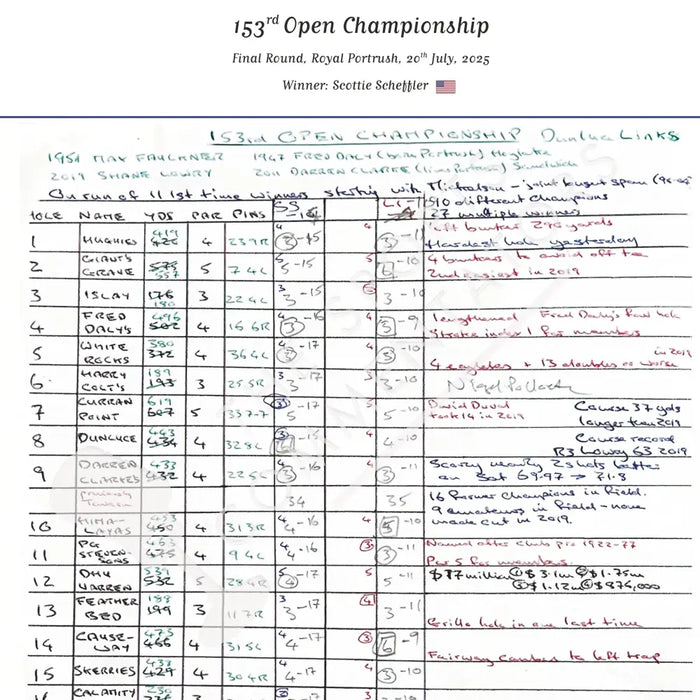 153rd Open Championship
Final Round, Royal Portrush, 20th July, 2025
Winner: Scottie Scheffler
153rd OPEN CHAMPIONSHIP Dunluce Links
1951 MAX FAULKNER 1947 FRED DALY
2019 SHANE LOWRY 2011 DARREN CLARKE
On run of 11 1st time winners starting with Mickelson
HOLE NAME YDS PAR PINS SS
10 different champions
27 multiple winners
1 HUGHIES 419 426 4 239R 3 -15 4 3 -11 left bunker yards
Hardest hole yesterday
2 GIANT'S GRAVE 575 557 5 74L 5 -15 4 6 -10 4 bunkers to avoid off tee
2nd easiest in 2019
3 ISLAY 176 180 3 224L 3 3 -15 3 -10
4 FRED DALY'S 496 502 4 166R 4 3 -16 4 3 -9 lengthened Fred Daly's fav hole
Stroke index 1 for members
5 WHITE ROCKS 380 372 4 364L 3 -17 4 3 -10 in 2019
4 eagles + 13 doubles or worse
6 HARRY COLT'S 189 193 3 255R 3 3 -17 3 3 -10
7 CURRAN POINT 619 607 5 337-7 5 -17 5 5 -10 David Duval took 14 in 2019
Course 37 yds longer than 2019
8 DUNLUCE 443 434 4 328L -15 4 4 -10 Course record
R3 Lowry 63 2019
9 DARREN CLARKE'S 433 432 4 225L 4 3 -16 4 3 -11 Scoring nearly 2 shots better
on Sat 69.97 → 71.8
34 35 16 former champions in field.
9 amateurs in field - none
made cut in 2019.
10 HIMALAYAS 453 450 4 313R 4 4 -16 4 5 -10
11 PG STEVENSON'S 463 475 4 94L 4 4 -16 3 3 -11 Named after club pro 1922-77
Par 5 for members.
12 DHU VARREN 539 532 5 284R 5 4 -17 5 5 -11 $17 million ① $3.1m ② $1.75m
③ $1.12m ④ $876,000
13 FEATHER BED 188 199 3 117R 3 3 -17 4 3 -11
Grillo hole in one last time
14 CAUSEWAY 473 466 4 315L 4 4 -17 3 6 -9
Fairway cambers to left trap
15 SKERRIES 433 429 4 304R 4 4 -17 4 3 -10
CALAMITY